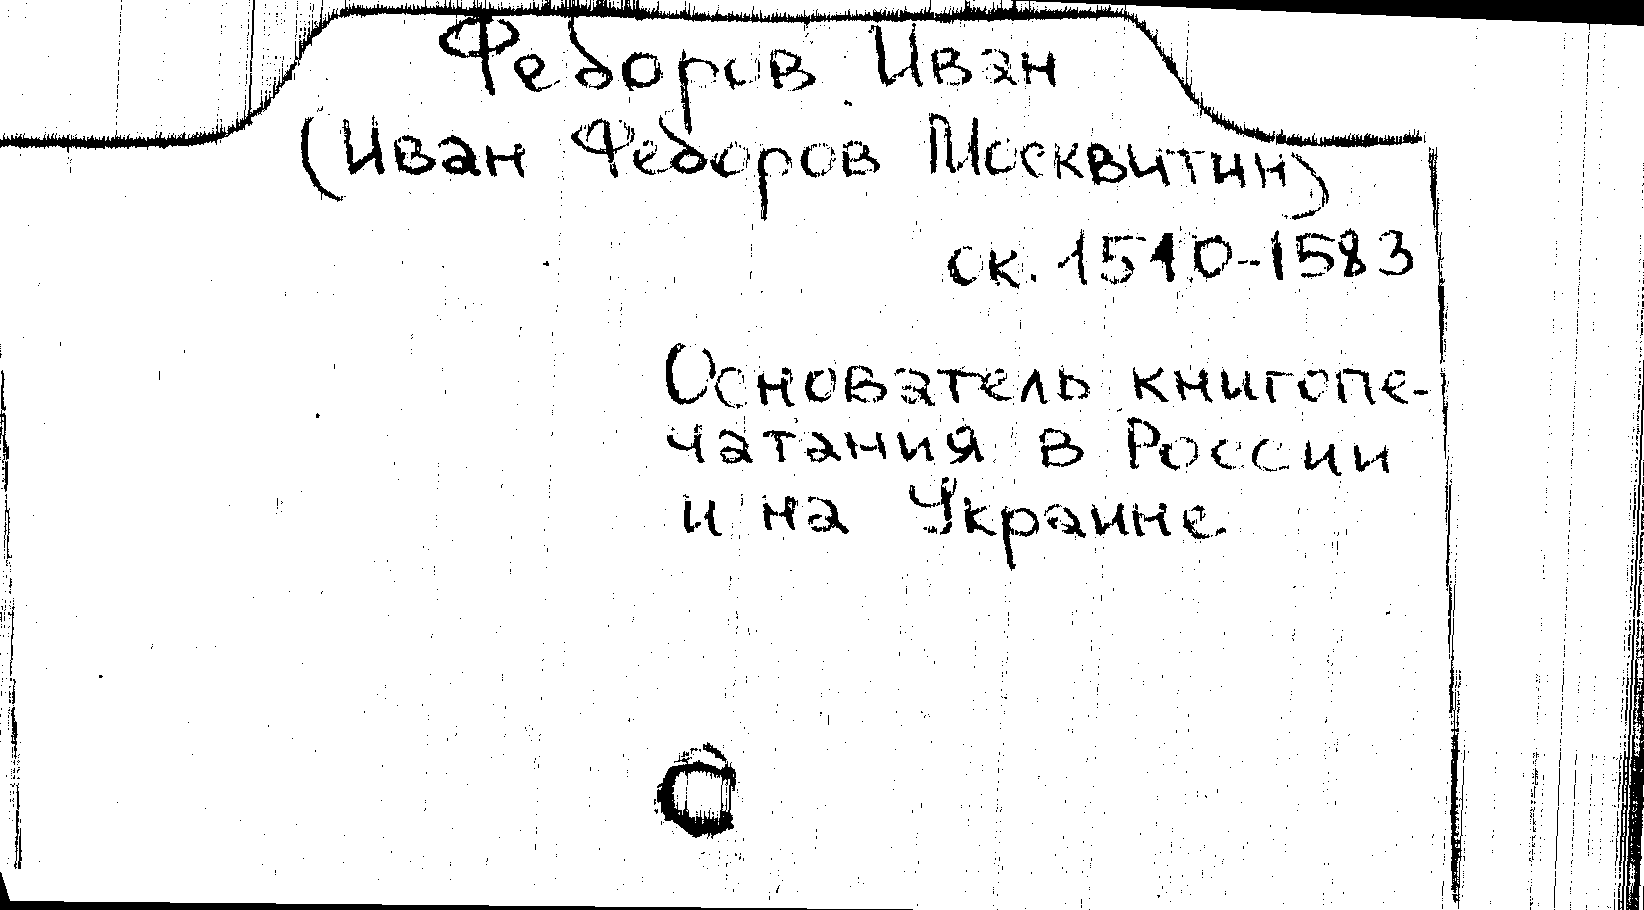 Федоров Иван
(Иван Федоров Москвитин)
ок. 1510-1583
Основатель книгопе-
чатания в России
и на Украине